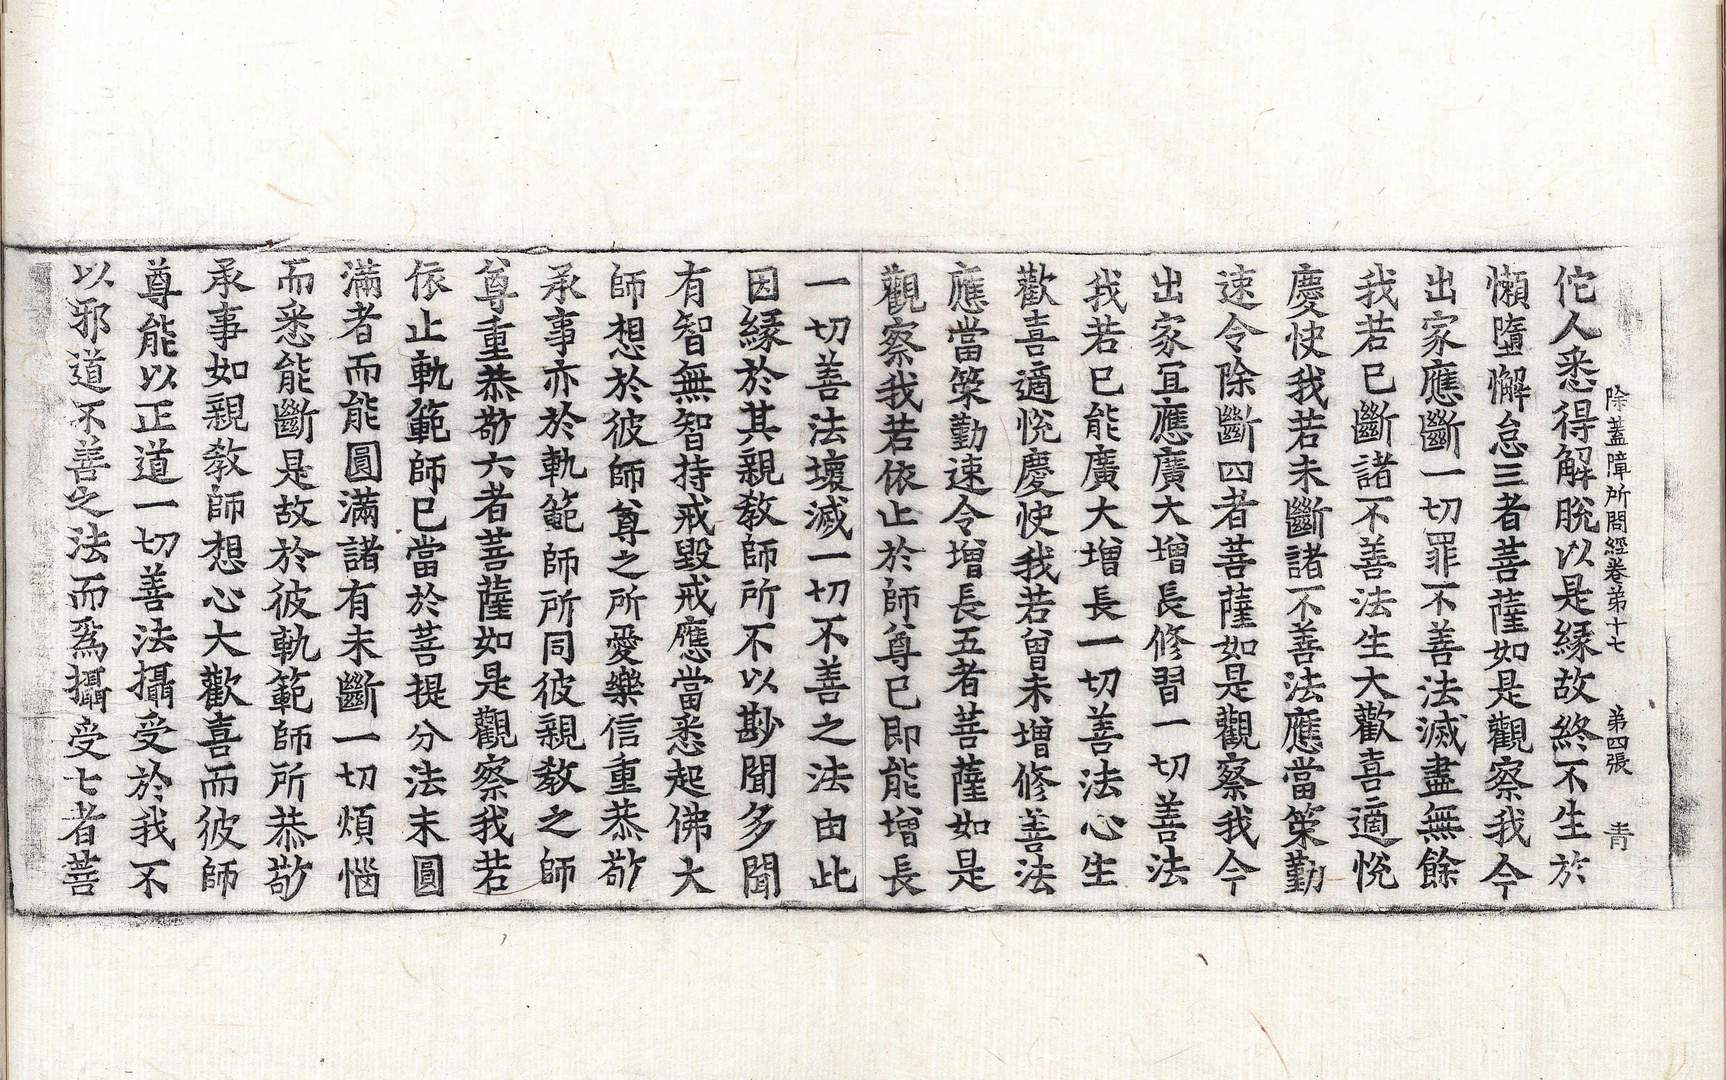 除蓋障所問經卷第十七 第四張 青
佗人悉得解脫以是緣故終不生於
懶墮懈怠三者菩薩如是觀察我今
出家應斷一切罪不善法滅盡無餘
我若已斷諸不善法生大歡喜適悅
慶快我若未斷諸不善法應當策勤
速令除斷四者菩薩如是觀察我今
出家宜應廣大增長修習一切善法
我若已能廣大增長一切善法心生
歡喜適悅慶快我若曾未增修善法
應當策勤速令增長五者菩薩如是
觀察我若依止於師尊已即能增長
一切善法壞滅一切不善之法由此
因緣於其親教師所不以尠聞多聞
有智無智持戒毀戒應當悉起佛大
師想於彼師尊之所愛樂信重恭敬
承事亦於軌範師所同彼親教之師
尊重恭敬六者菩薩如是觀察我若
依止軌範師已當於菩提分法未圓
滿者而能圓滿諸有未斷一切煩惱
而悉能斷是故於彼軌範師所恭敬
承事如親教師想心大歡喜而彼師
尊能以正道一切善法攝受於我不
以邪道不善之法而爲攝受七者菩